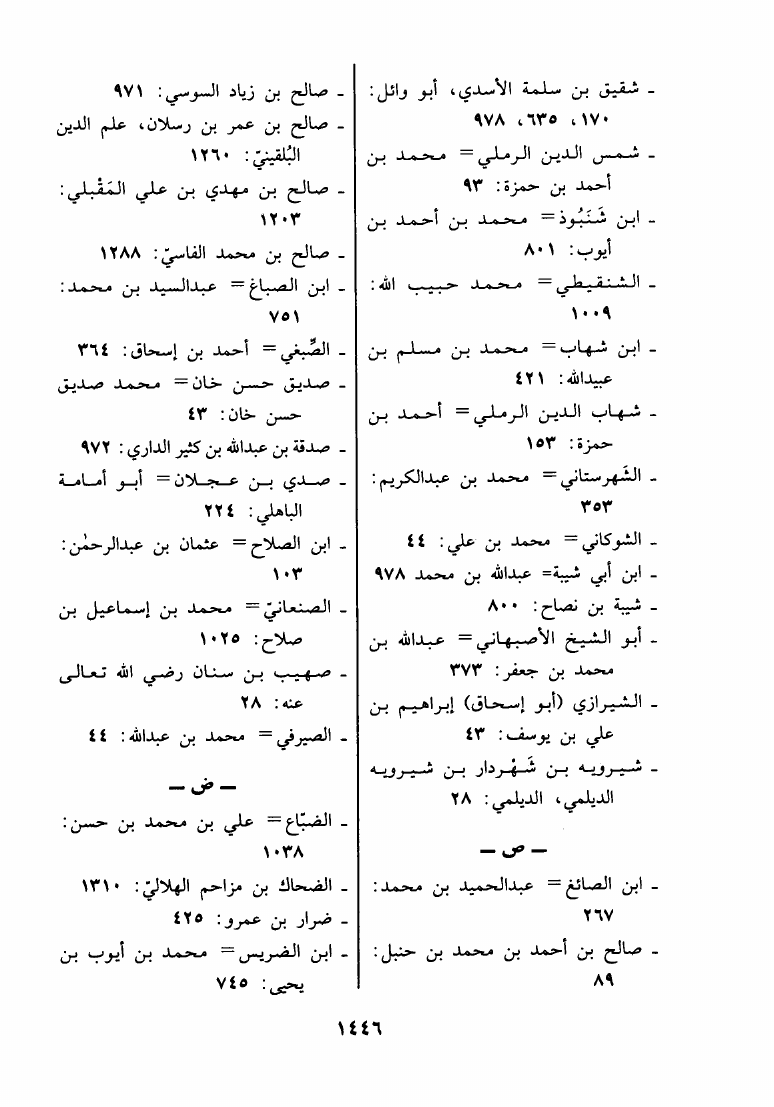 - شقيق بن سلمة الأسدي، أبو وائل:
١٧٠، ٦٣٥، ٩٧٨
- شمس الدين الرملي = محمد بن
أحمد بن حمزة: ٩٣
- ابن شَنَبُوذ = محمد بن أحمد بن
أيوب: ٨٠١
- الشنقيطي = محمد حبيب الله:
١٠٠٩
- ابن شهاب = محمد بن مسلم بن
عبيدالله: ٤٢١
- شهاب الدين الرملي = أحمد بن
حمزة: ١٥٣
- الشَهرستاني = محمد بن عبدالكريم:
٣٥٣
- الشوكاني = محمد بن علي: ٤٤
- ابن أبي شيبة= عبدالله بن محمد ٩٧٨
- شيبة بن نصاح: ٨٠٠
- أبو الشيخ الأصبهاني = عبدالله بن
محمد بن جعفر: ٣٧٣
- الشيرازي (أبو إسحاق) إبراهيم بن
علي بن يوسف: ٤٣
- شيرويه بن شَهْردار بن شيرويه
الديلمي، الديلمي: ٢٨
- ص -
- ابن الصائغ = عبدالحميد بن محمد:
٢٦٧
- صالح بن أحمد بن محمد بن حنبل:
٨٩
- صالح بن زياد السوسي: ٩٧١
- صالح بن عمر بن رسلان، علم الدين
البُلقينيّ: ١٢٦٠
- صالح بن مهدي بن علي المَقْبلي:
١٢٠٣
- صالح بن محمد الفاسيّ: ١٢٨٨
- ابن الصباغ = عبدالسيد بن محمد:
٧٥١
- الصِّبغي = أحمد بن إسحاق: ٣٦٤
- صديق حسن خان = محمد صديق
حسن خان: ٤٣
- صدقة بن عبدالله بن كثير الداري: ٩٧٢
- صدي بن عجلان = أبو أمامة
الباهلي: ٢٢٤
- ابن الصلاح = عثمان بن عبدالرحمٰن:
١٠٣
- الصنعانيّ = محمد بن إسماعيل بن
صلاح: ١٠٢٥
- صهيب بن سنان رضي الله تعالى
عنه: ٢٨
- الصيرفي = محمد بن عبدالله: ٤٤
- ض -
- الضبّاع = علي بن محمد بن حسن:
١٠٣٨
- الضحاك بن مزاحم الهلاليّ: ١٣١٠
- ضرار بن عمرو: ٤٢٥
- ابن الضريس = محمد بن أيوب بن
يحيى: ٧٤٥
١٤٤٦